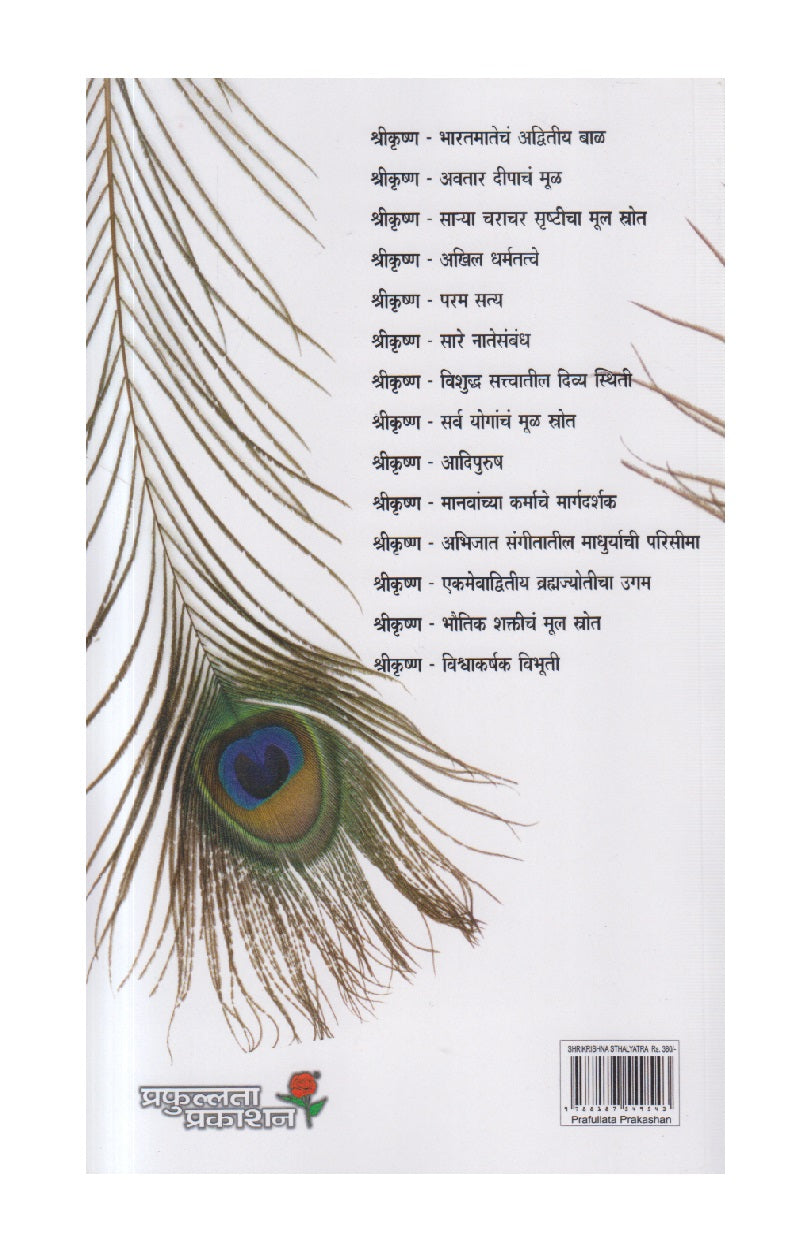 श्रीकृष्ण - भारतमातेचं अद्वितीय बाळ
श्रीकृष्ण - अवतार दीपाचं मूळ
श्रीकृष्ण - साऱ्या चराचर सृष्टीचा मूल स्रोत
श्रीकृष्ण - अखिल धर्मतत्वे
श्रीकृष्ण - परम सत्य
श्रीकृष्ण - सारे नातेसंबंध
श्रीकृष्ण - विशुद्ध सत्त्वातील दिव्य स्थिती
श्रीकृष्ण - सर्व योगांचं मूळ स्रोत
श्रीकृष्ण - आदिपुरुष
श्रीकृष्ण - मानवांच्या कर्माचे मार्गदर्शक
श्रीकृष्ण - अभिजात संगीतातील माधुर्याची परिसीमा
श्रीकृष्ण - एकमेवाद्वितीय ब्रह्मज्योतीचा उगम
श्रीकृष्ण - भौतिक शक्तीचं मूल स्रोत
श्रीकृष्ण - विश्वाकर्षक विभूती
SHRIKRISHNA STHALYATRA Rs. 380/-
Prafullata Prakashan
प्रफुल्लता
प्रकाशन